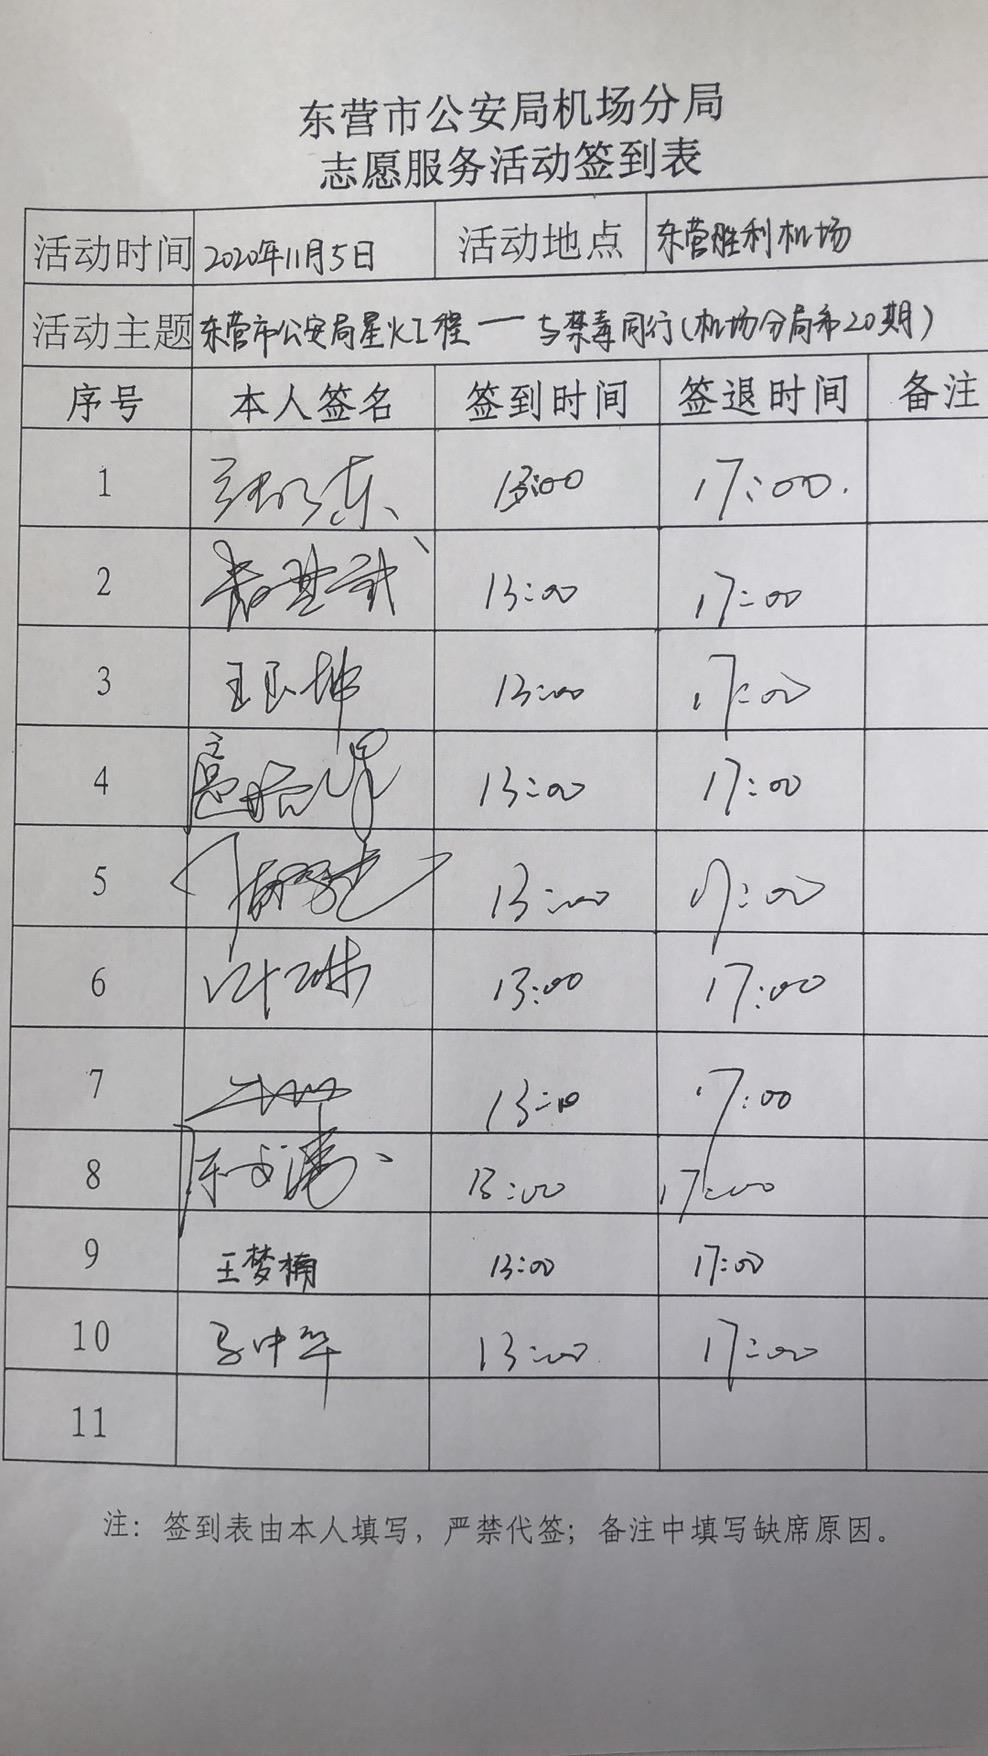 东营市公安局机场分局
志愿服务活动签到表
活动时间 2020年11月5日 活动地点 东营胜利机场
活动主题 东营市公安局星火工程——与禁毒同行(机场分局第20期)
序号 本人签名 签到时间 签退时间 备注
1 13:00 17:00.
2 13:00 17:00
3 13:00 17:00
4 13:00 17:00
5 13:00 17:00
6 叶琳 13:00 17:00
7 13:00 17:00
8 13:00 17:00
9 王梦楠 13:00 17:00
10 马中华 13:00 17:00
11
注：签到表由本人填写，严禁代签；备注中填写缺席原因。